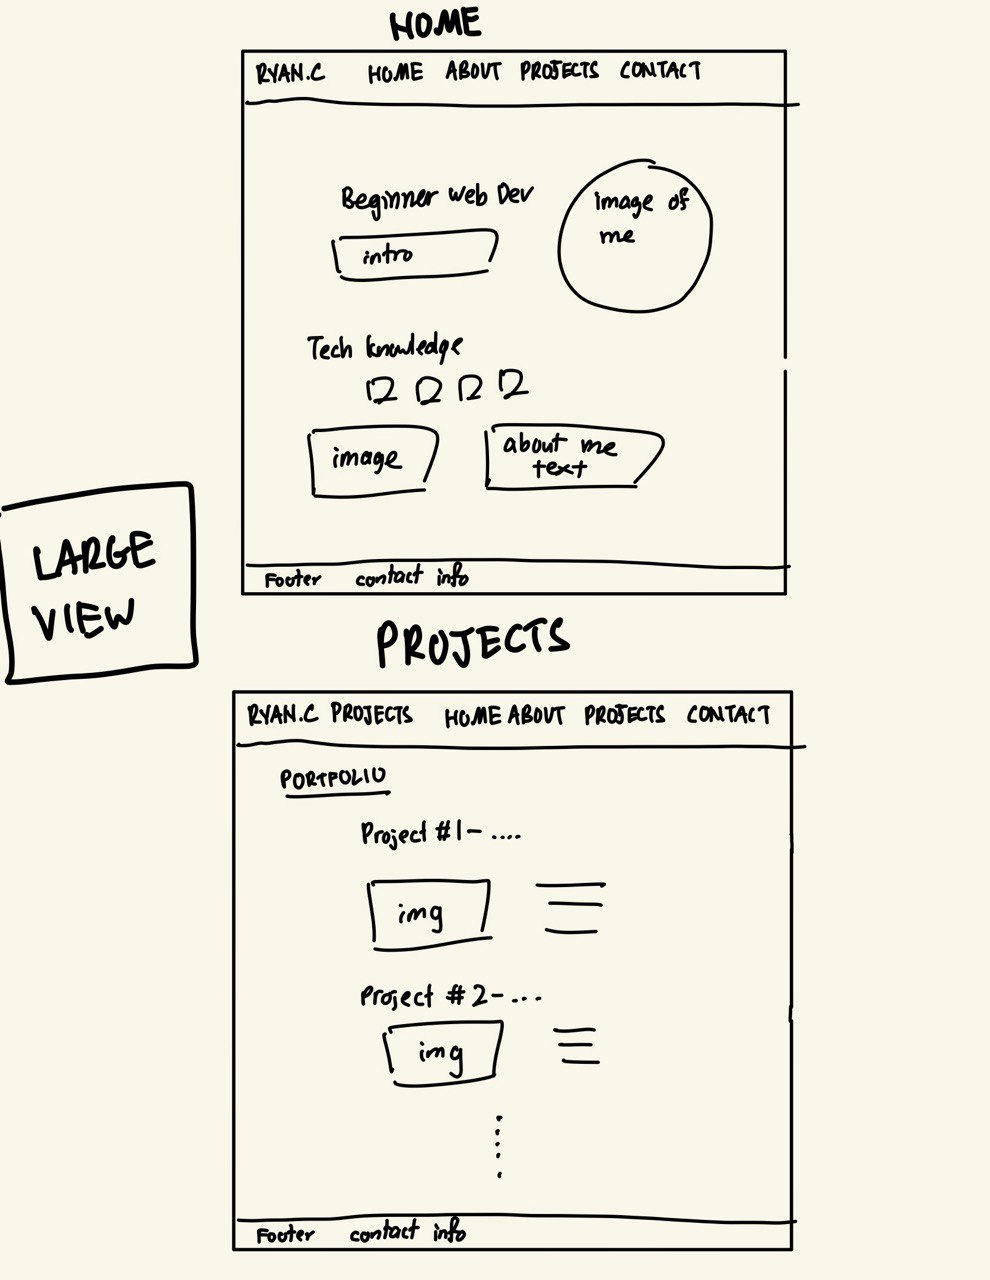 HOME
RYAN.C HOME ABOUT PROJECTS CONTACT
Beginner Web Dev
image of
me
intro
Tech knowledge
image
about me
text
LARGE
VIEW
Footer contact info
PROJECTS
RYAN.C PROJECTS HOME ABOUT PROJECTS CONTACT
PORTFOLIO
Project #1- ....
img
Project #2- ...
img
Footer contact info